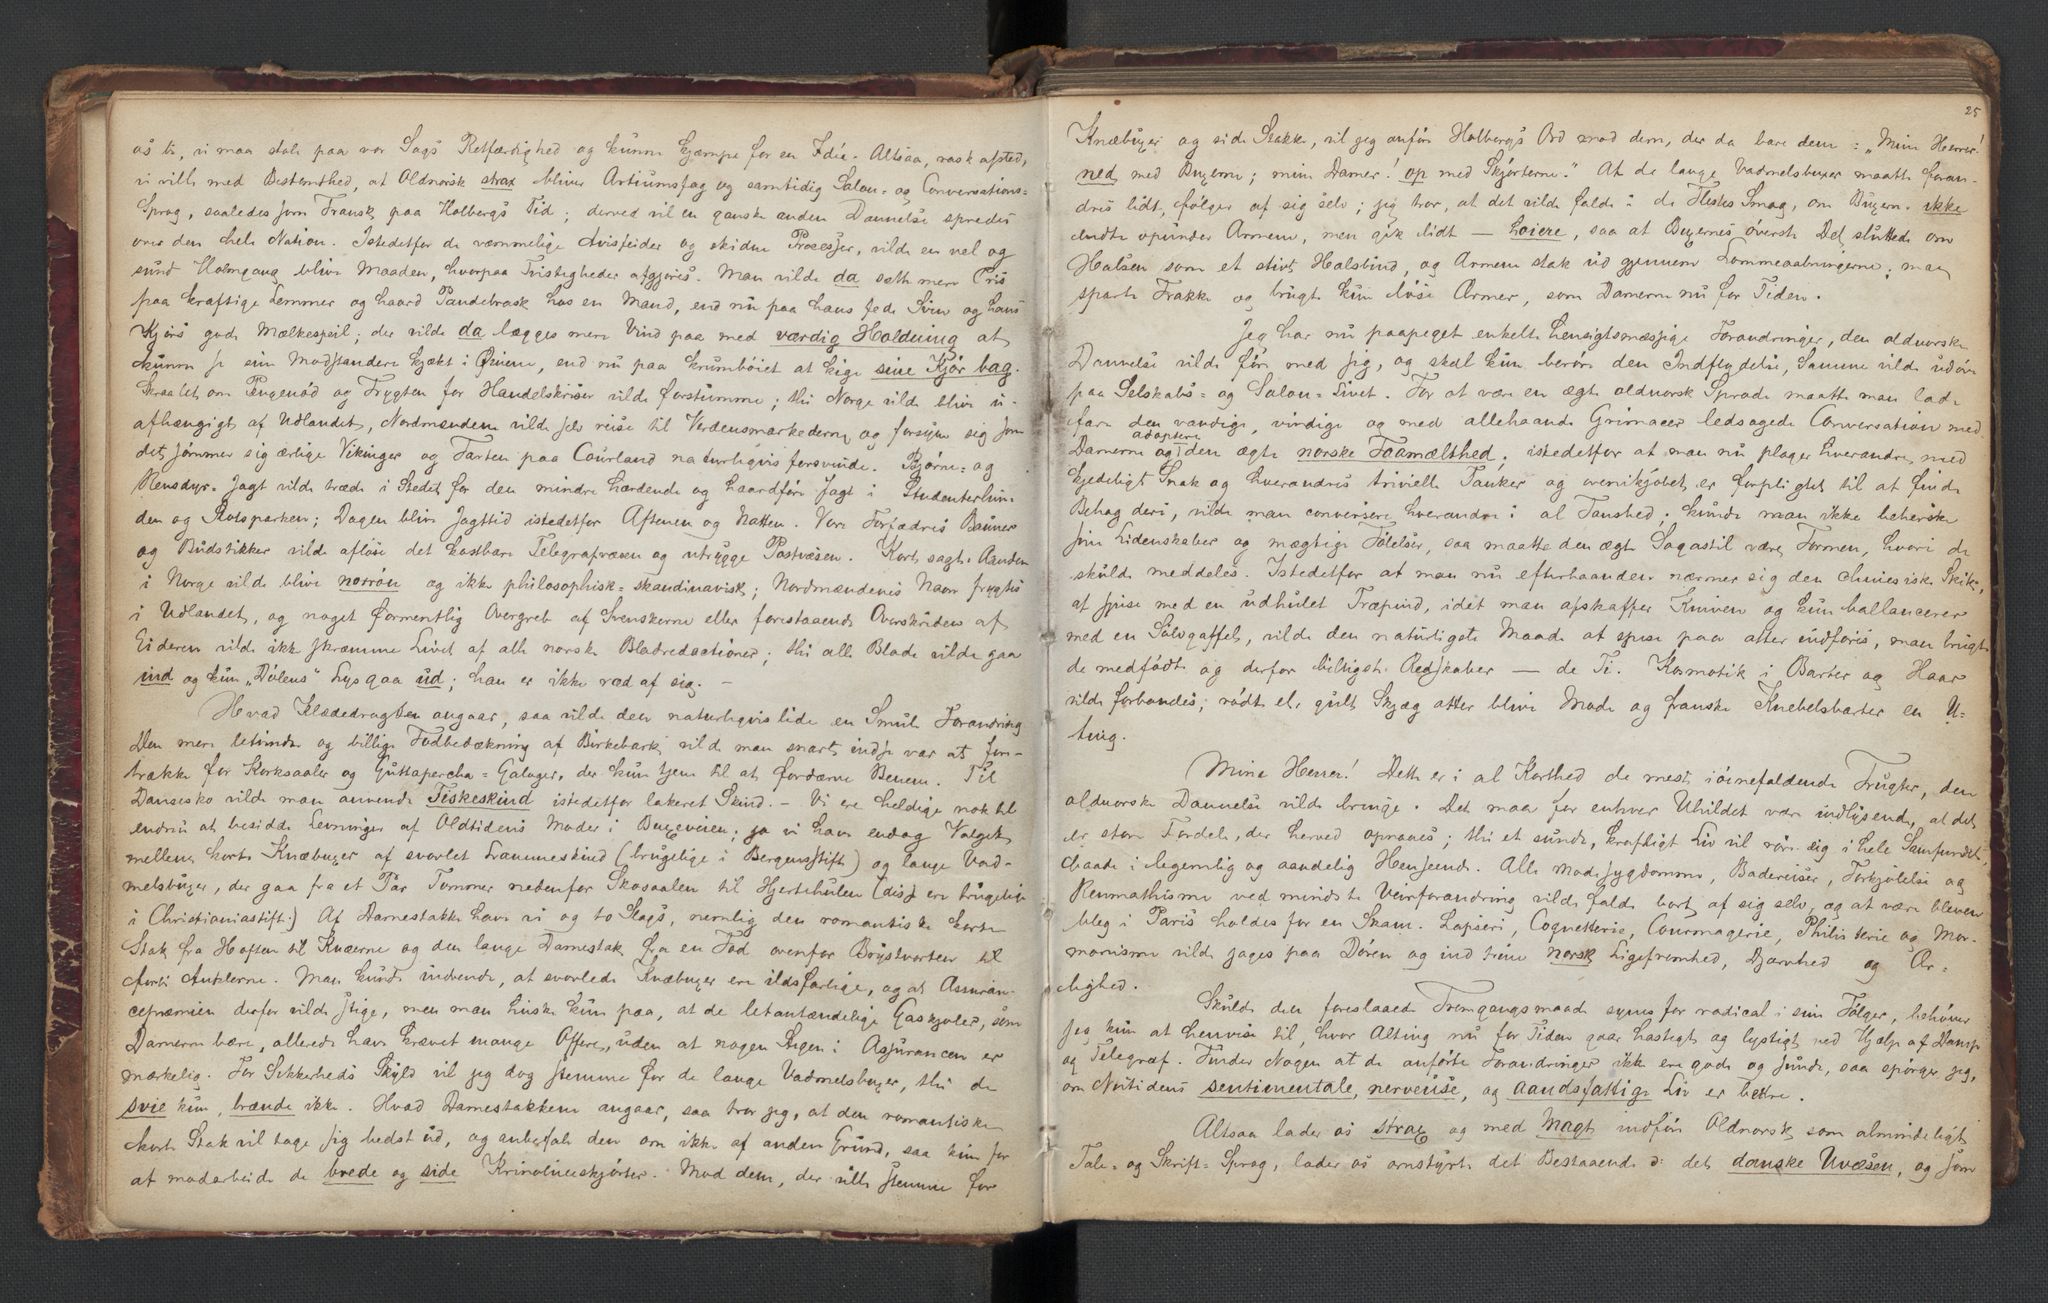 os ti, vi maa stole paa vor Sags Retfærdighed og kunne kjæmpe for en Idée. Altsaa, rask afsted,
vi ville med Bestemthed, at Oldnorsk strax bliver Artiumsfag og samtidig Salon- og Conversations-
Sprog, saaledes som Fransk paa Holbergs Tid; derved vil en ganske anden Dannelse spredes
over den hele Nation. Istedetfor de væmmelige Avisfeider og skidne Processer, vilde en vel og
sund Holmgang blive Maaden, hvorpaa Tvistigheder afgjøres. Man vilde da sætte mere Pris
paa kraftige Lemmer og haard Pandebrask hos en Mand, end nu paa hans fede Sviin og hans
Kjørs gode Mælkespeil; der vilde da lægges mere Vind paa med værdig Holdning at
kunne se sine Modstandere kjækt i Øinene, end nu paa krumbøiet at kige sine Kjør bag.
Skraalet om Pengenød og Frygten for Handelskriser vilde forstumme; thi Norge vilde blive u-
afhængigt af Udlandet, Nordmændene vilde selv reise til Verdensmarkederne og forsyne sig som
det sømmer sig ærlige Vikinger og Farten paa Courland naturligvis forsvinde. Bjørne- og
Rensdyr-Jagt vilde træde i Stedet for den mindre hærdende og haardføre Jagt i Studenterlun-
den og Slotsparken; Dagen blive Jagttid istedetfor Aftenen og Natten. Vore Forfædres Bauner
og Budstikker vilde afløse det kostbare Telegrafvæsen og utrygge Postvæsen. Kort sagt: Aanden
i Norge vilde blive norrøn og ikke philosophisk-skandinavisk; Nordmændenes Navn frygtes
i Udlandet, og noget formentlig Overgreb af Svenskerne eller forestaaende Overskriden af
Eideren vilde ikke skræmme Livet af alle norske Bladredactioner; thi alle Blade vilde gaa
ind og kun „Dølens“ Lys gaa ud; han er ikke ræd af sig. –
Hvad Klædedragten angaar, saa vilde den naturligvis lide en Smule Forandring
Den mere letvindte og billige Fodbedækning af Birkebark vilde man snart indse var at fore-
trække for Korksaaler og Guttapercha-Galoger, der kun tjene til at fordærve Benene. Til
Dansesko vilde man anvende Fiskeskind istedetfor lakeret Skind. – Vi ere heldige nok til
endnu at besidde Levninger af Oldtidens Moder i Buxeveien; ja vi have endog Valget
mellem korte Knæbuxer af svovlet Lammeskind (brugelige i Bergensstift) og lange Vad-
melsbuxer, der gaa fra et Par Tommer nedenfor Skosaalen til Hjertehulen (disse ere brugelige
i Christianiastift.) Af Damestakke have vi og to Slags, nemlig den romantiske korte
Stak fra Hoften til Knæerne og den lange Damestak fra en Fod ovenfor Brystvorterne til
Anklerne. Man kunde indvende, at svovlede Knæbuxer ere ildsfarlige, og at Assuran-
cepræmien derfor vilde stige, men man huske kun paa, at de letantændelige Gaskjoler, som
Damerne bære, allerede have krævet mange Offere, uden at nogen Stigen i Assurancen er
mærkelig. For Sikkerheds Skyld vil jeg dog stemme for de lange Vadmelsbuxer, thi de
svie kun, brænde ikke. Hvad Damestakkene angaar, saa tror jeg, at den romantiske
korte Stak vil tage sig bedst ud, og anbefale den om ikke af anden Grund, saa kun for
at modarbeide de brede og side Krinolineskjørter. Mod dem, der ville stemme for
25
Knæbuxer og side Stakke, vil jeg anføre Holbergs Ord mod dem, der da bare dem: „Mine Herrer!
ned med Buxerne; mine Damer! op med Skjørterne.“ At de lange Vadmelsbuxer maatte foran-
dres lidt, følger af sig selv; jeg tror, at det vilde falde i de Flestes Smag, om Buxerne ikke
endte opunder Armene, men gik lidt – høiere, saa at Buxernes øverste Del sluttede om
Halsen som et stivt Halsbind, og Armene stak ud gjennem Lommeaabningerne; man
sparte Frakke og brugte kun løse Ærmer, som Damerne nu for Tiden.
Jeg har nu paapeget enkelte hensigtsmæssige Forandringer, den oldnorske
Dannelse vilde føre med sig, og skal kun berøre den Indflydelse, Samme vilde udøve
paa Selskabs- og Salon-Livet. For at være en ægte oldnorsk Sprade maatte man lade
fare den vandige, vindige og med allehaande Grimacer ledsagede Conversation med
Damerne og adoptere den ægte norske Faamælthed; istedetfor at man nu plager hverandre med
kjedeligt Snak og hverandres trivielle Tanker og ovenikjøbet er forpligtet til at finde
Behag deri, vilde man conversere hverandre i al Taushed; kunde man ikke beherske
sine Lidenskaber og mægtige Følelser, saa maatte den ægte Sagastil være Formen, hvori de
skulde meddeles. Istedetfor at man nu efterhaanden nærmer sig den chinesiske Skik,
at spise med en udhulet Træpind, idet man afskaffer Kniven og kun ballancerer
med en Sølvgaffel, vilde den naturligste Maade at spise paa atter indføres, man brugte
de medfødte og derfor billigste Redskaber – de Ti. Kosmetik i Barter og Haar
vilde forbandes; rødt el. gult Skjæg atter blive Mode og franske Knebelsbarter en U-
ting.
Mine Herrer! Dette er i al Korthed de mest iøinefaldende Frugter, den
oldnorske Dannelse vilde bringe. Det maa for enhver Uhildet være indlysende, at det
er store Fordele, der herved opnaaes; thi et sundt, kraftigt Liv vil røre sig i hele Samfundet,
baade i legemlig og aandelig Henseende. Alle Modesygdomme, Badereiser, Forkjølelse og
Reumathisme ved mindste Veirforandring vilde falde bort af sig selv, og at være bleven
bleg i Paris holdes for en Skam. Lapseri, Coquetterie, Courmagerie, Philisterie og Mor-
monisme vilde jages paa Døren og ind trine norsk Ligefremhed, Djærvhed og Ær-
lighed.
Skulde den foreslaaede Fremgangsmaade synes for radical i sine Følger, behøver
jeg kun at henvise til, hvor Alting nu for Tiden gaar hastigt og lystigt ved Hjælp af Damp
og Telegraf. Finder Nogen at de anførte Forandringer ikke ere gode og sunde, saa spørger jeg,
om Nutidens sentimentale, nerveuse, og aandsfattige Liv er bedre.
Altsaa lader os strax og med Magt indføre Oldnorsk som almindeligt
Tale- og Skrift-Sprog, lader os omstyrte det Bestaaende ɔ: det danske Uvæsen, og som